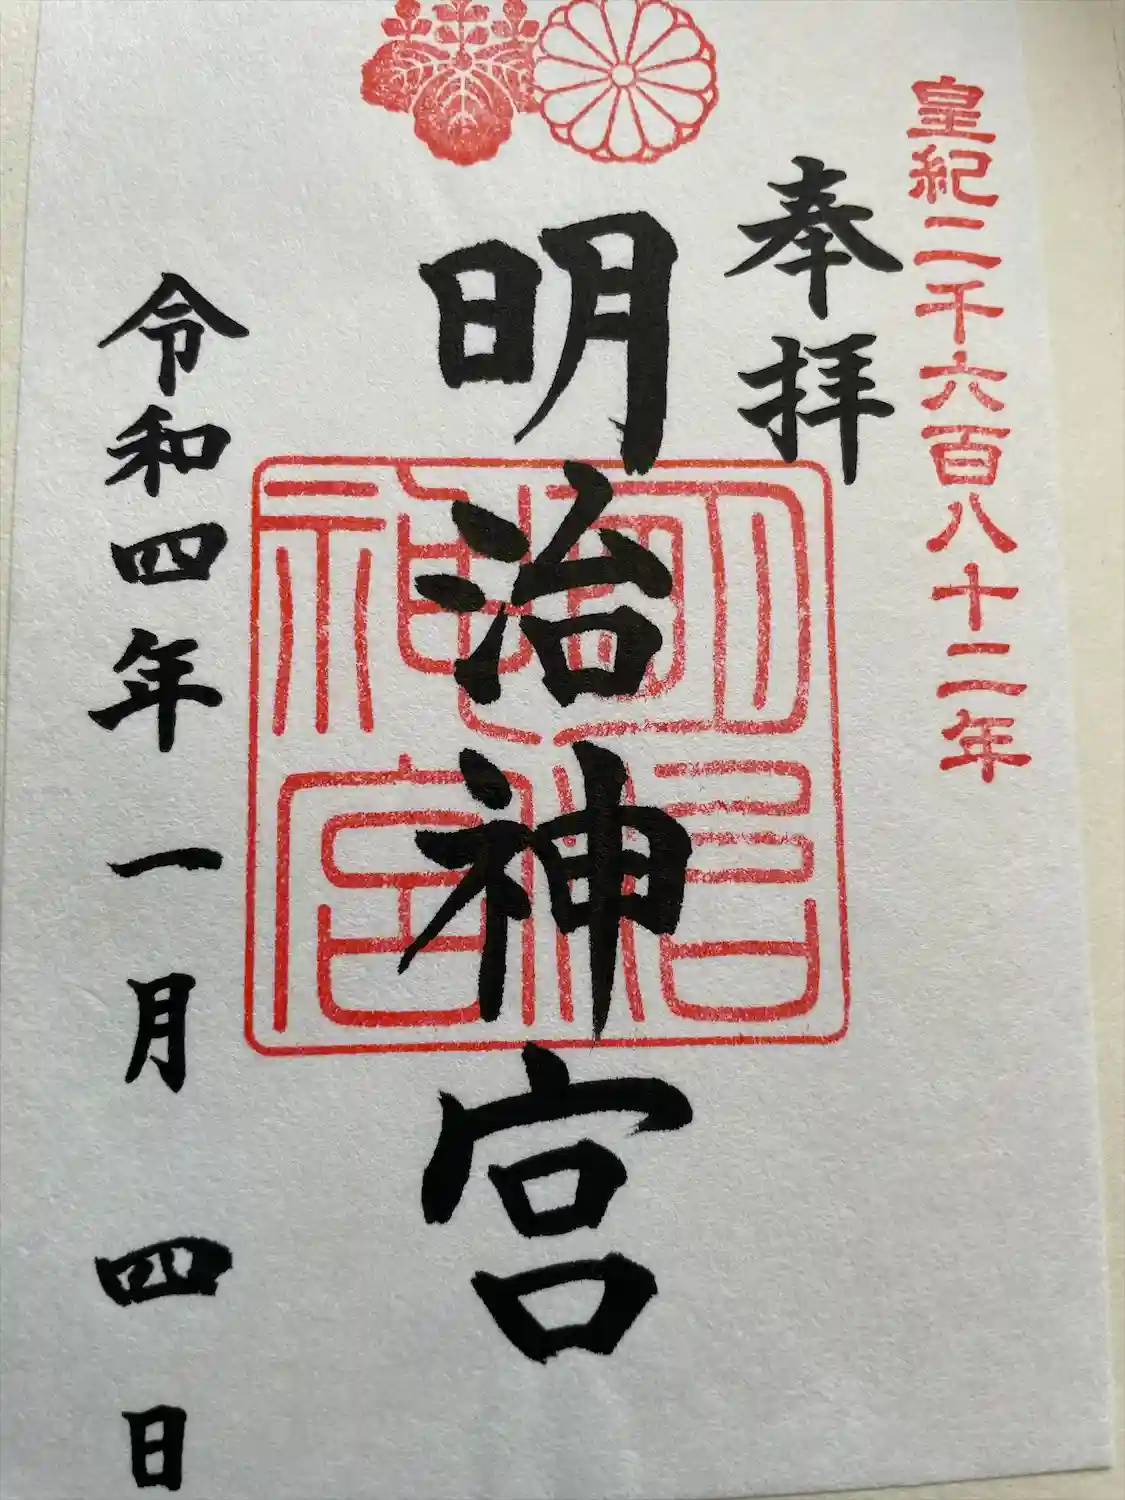 皇紀二千六百八十二年
奉拝
明治神宮
明治神宮
令和四年一月四日